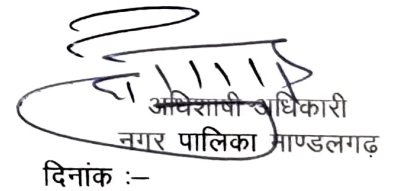 अधिशाषी अधिकारी
नगर पालिका माण्डलगढ़
दिनांक :–